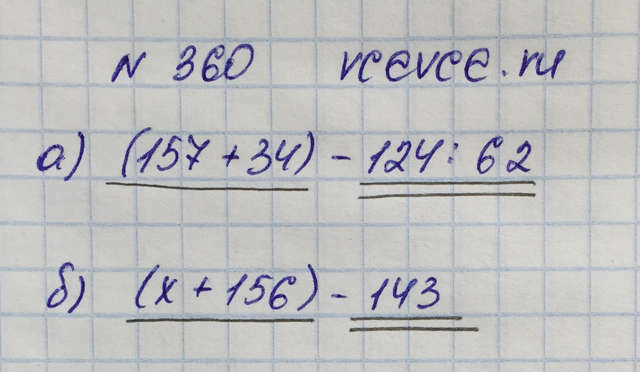 N 360 vcevce.ru
а) (157 + 34) - 124 : 62
б) (x + 156) - 143